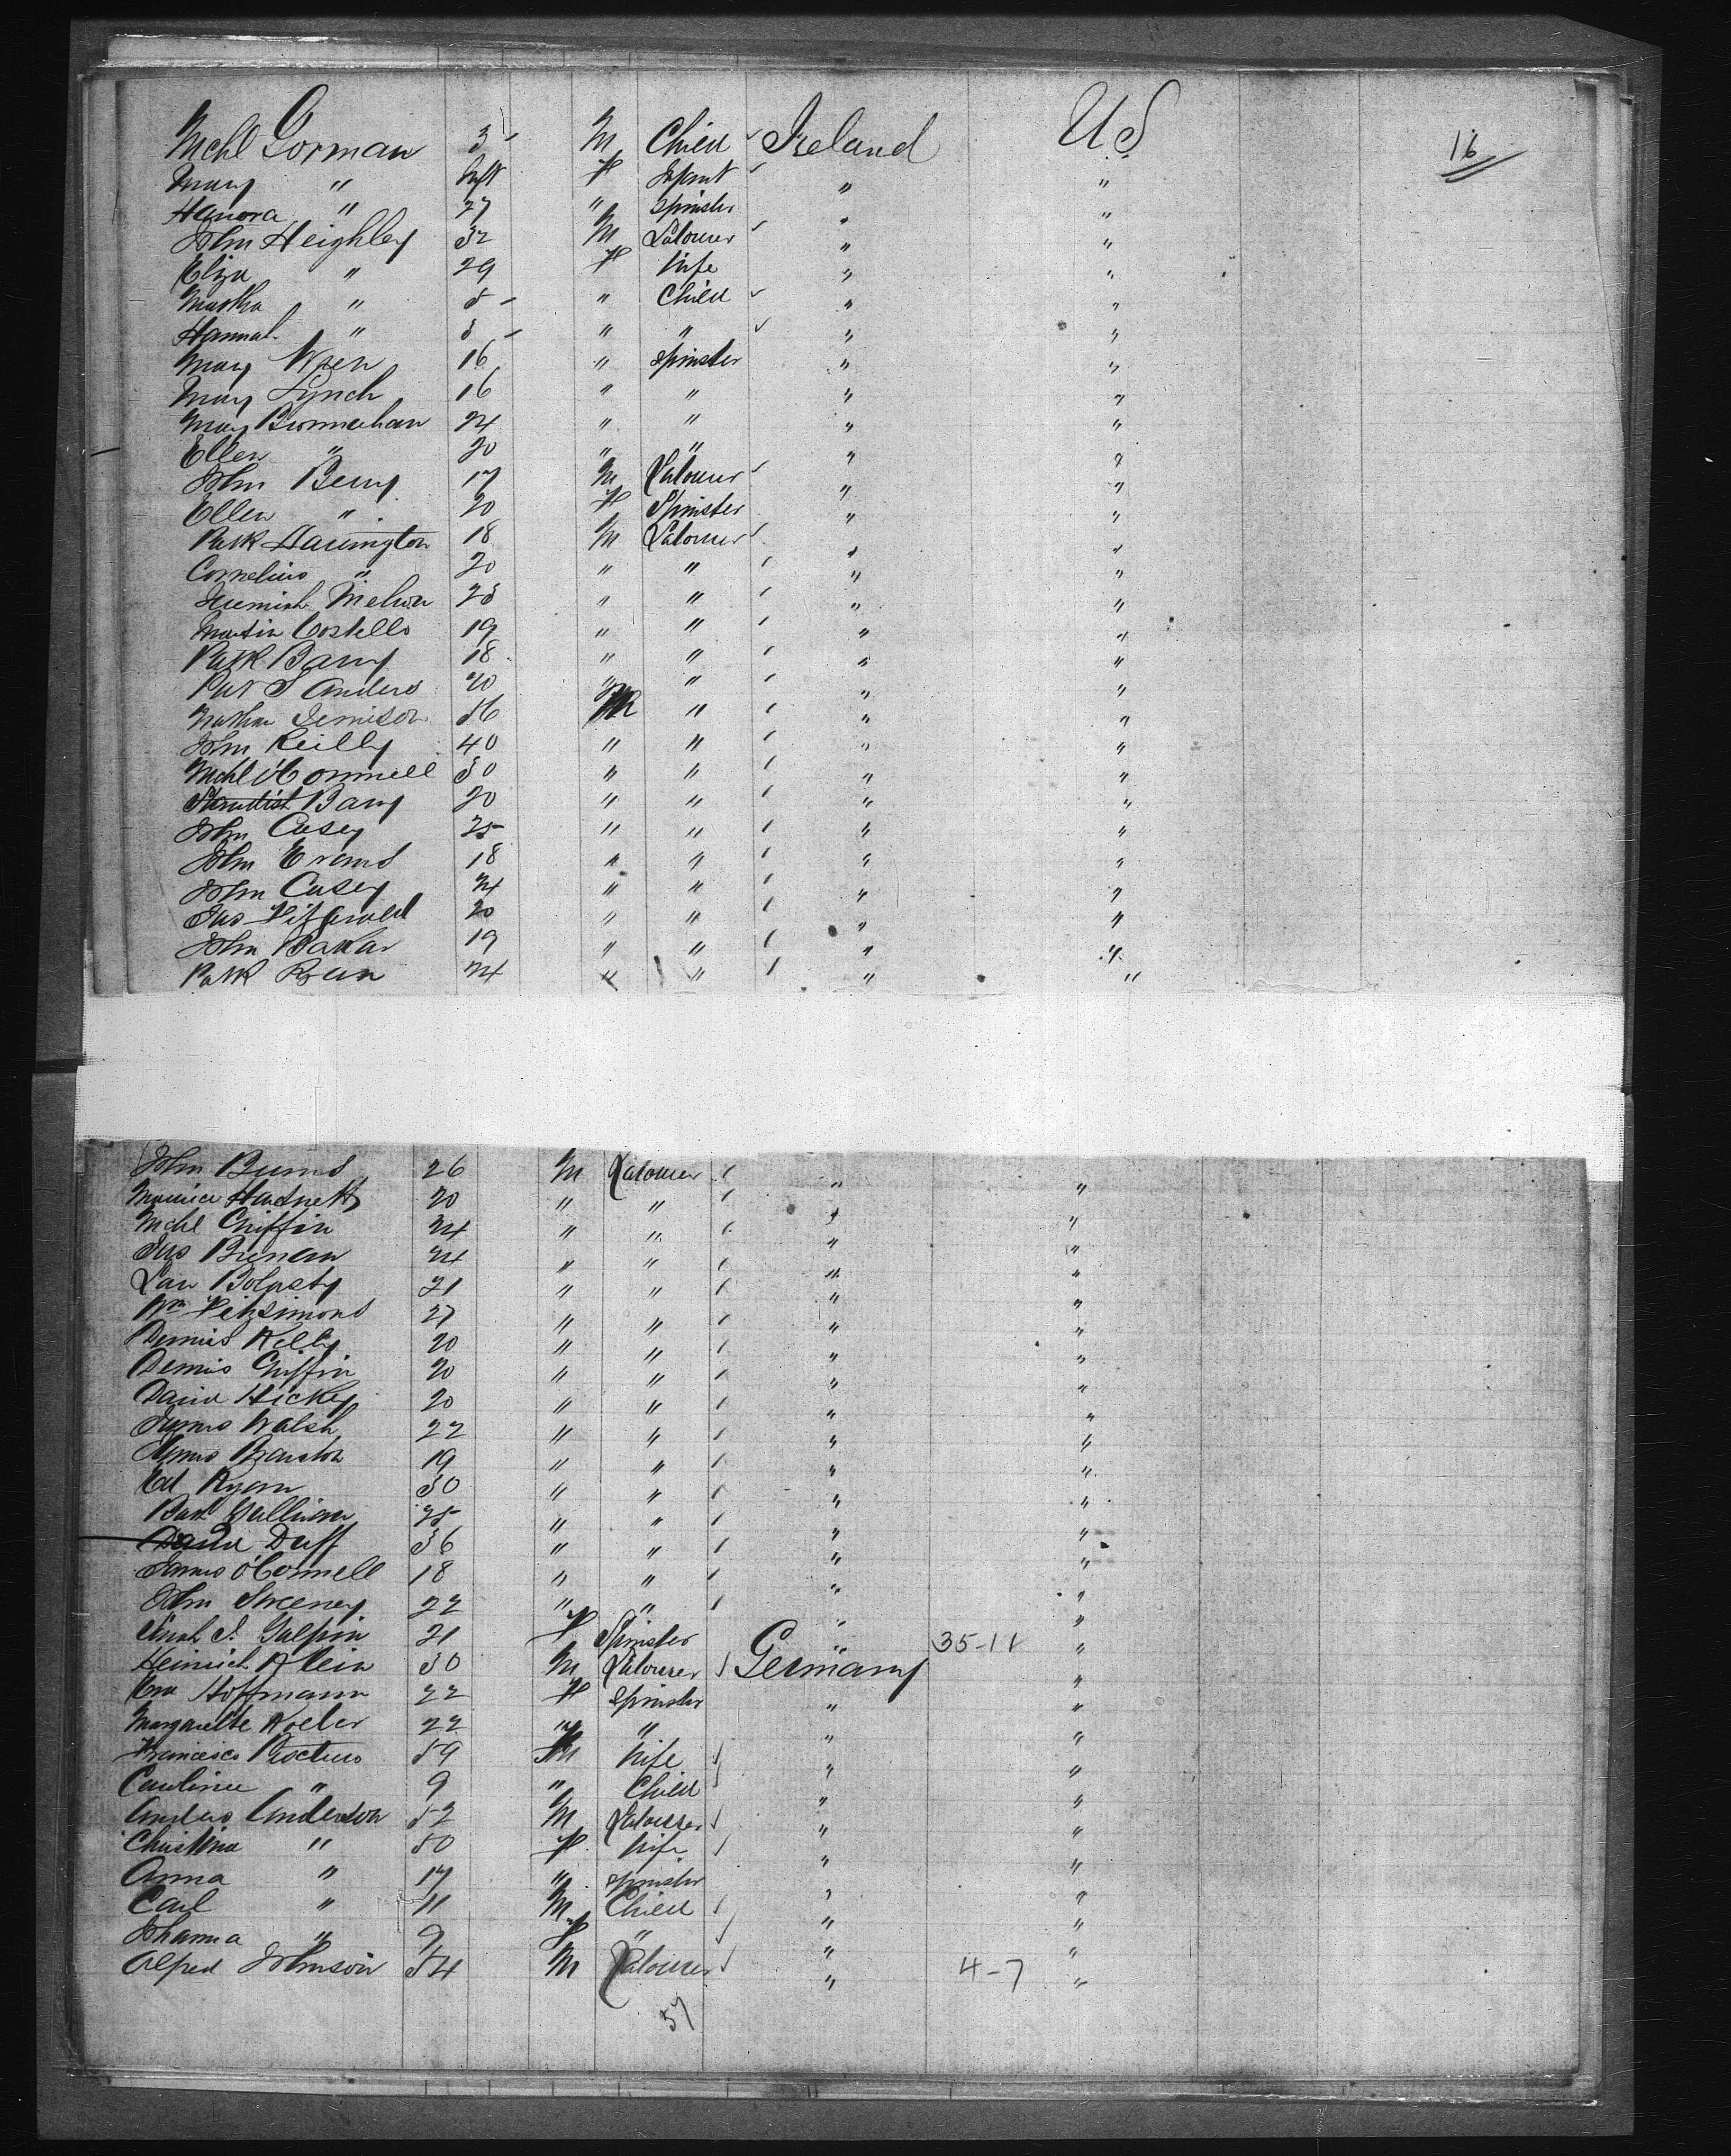 Mchl Gorman 3 M Child Ireland US 16
Mary " Inft F Infant " "
Hanora " 27 " Spinster " "
John Heighley 32 M Labourer " "
Eliza " 29 F Wife " "
Martha " 5 " Child " "
Hannah " 3 " " " "
Mary Wren 16 " Spinster " "
Mary Lynch 16 " " " "
Mary 24 " " " "
Ellen " 20 " " " "
John Berry 17 M Labourer " "
Ellen " 20 F Spinster " "
Patk Harrington 18 M Labourer " "
Cornelius " 20 " " " "
Jeremiah 23 " " " "
Martin Costello 19 " " " "
Patk Barry 18 " " " "
Pat 20 " " " "
Nathan Jemison 56 M " " "
John Reilly 40 " " " "
Mchl O'Connell 30 " " " "
Standish Barry 20 " " " "
John Casey 25 " " " "
John Evans 18 " " " "
John Casey 24 " " " "
Jas Fitzgerald 20 " " " "
John 19 " " " "
Patk 24 " " " "
John Burns 26 M Labourer " "
Maurice Hartnett 20 " " " "
Mchl Griffin 24 " " " "
Jas 24 " " " "
Lau 21 " " " "
Wm Fitzsimons 27 " " " "
Dennis Kelly 20 " " " "
Dennis Griffin 20 " " " "
David Hickey 20 " " " "
James Walsh 22 " " " "
James 19 " " " "
Ed Ryan 30 " " " "
Bart Gallivan 25 " " " "
David Duff 36 " " " "
James O'Connell 18 " " " "
John Sweeney 22 " " " "
Sarah J. Galpin 21 F Spinster " 35-11 "
Heinrich Klein 30 M Labourer Germany "
Eva Hoffmann 22 F Spinster " "
Margarethe 22 " " " "
Francesca 59 Wife " "
Caroline " 9 " Child " "
Anders Anderson 52 M Labourer " "
Christina " 50 F Wife " "
Anna " 17 " Spinster " "
Carl " 11 M Child " "
Johanna " 9 F " " "
Alfred Johnson 54 M Labourer " 4-7 "
57